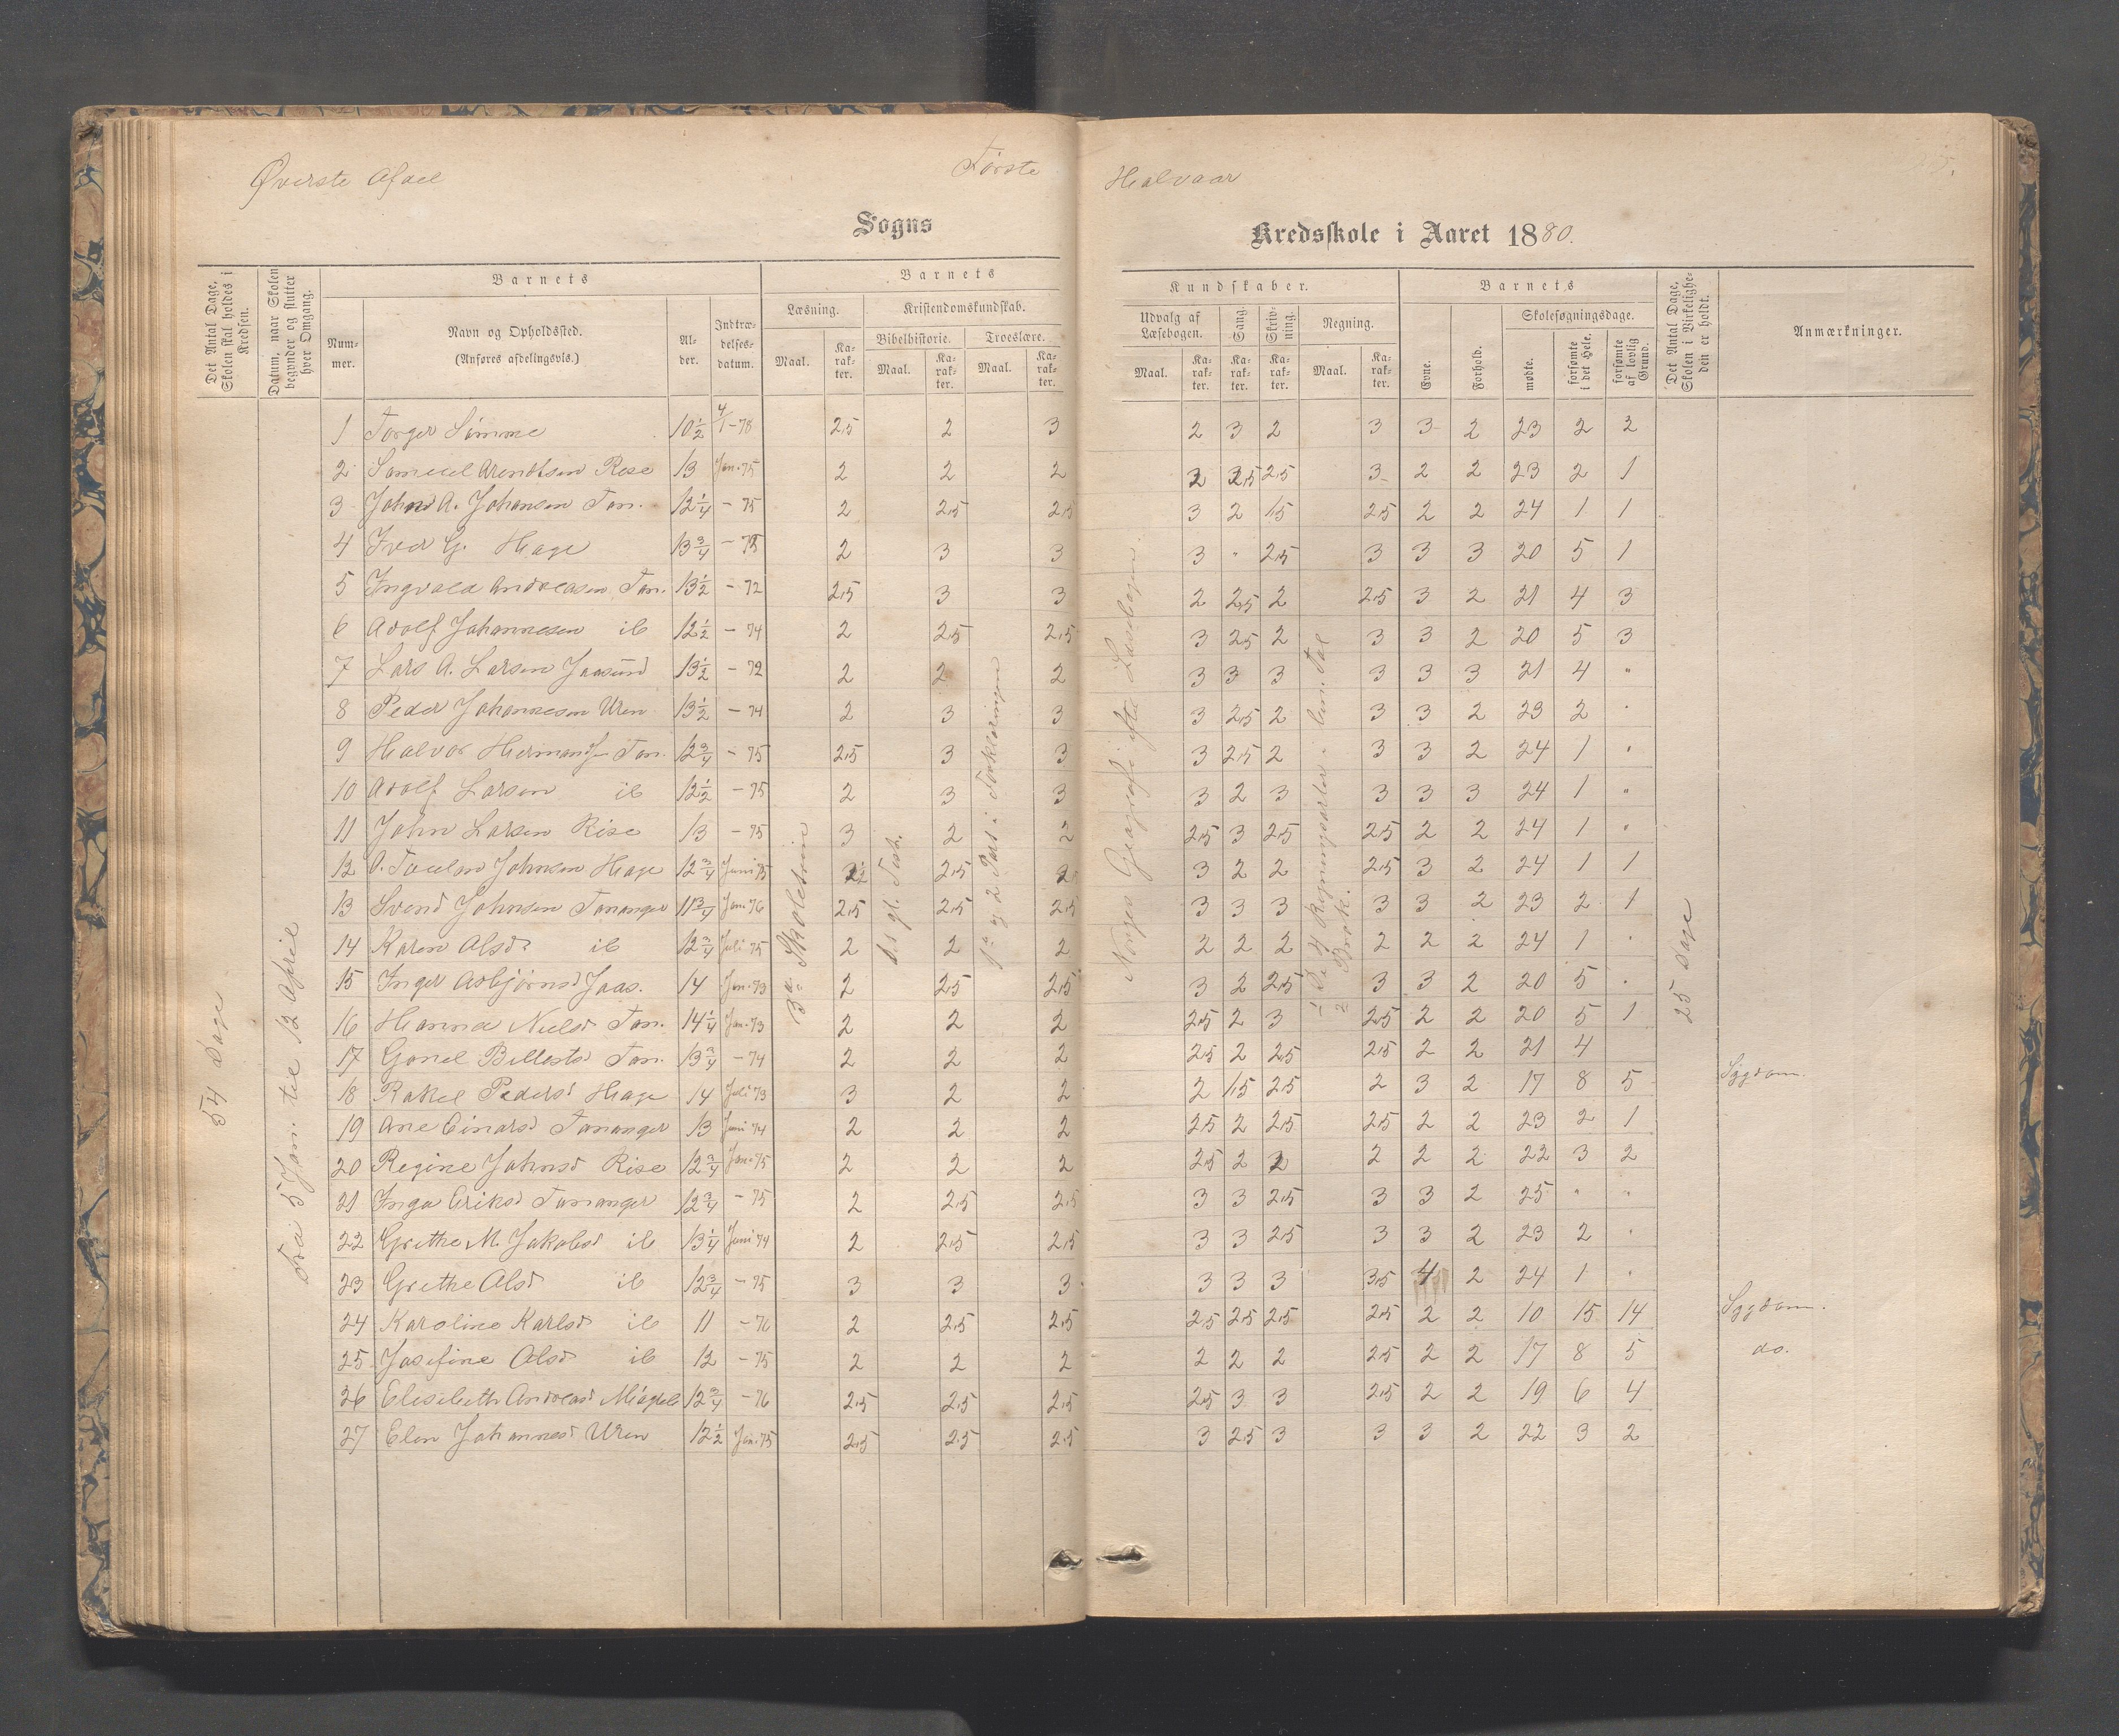 Øverste Afdel
Første
Halvaar
Sogns
Kredsskole i Aaret 1880.
Det Antal Dage, Skolen skal holdes i Kredsen.
Datum, naar Skolen begynder og slutter hver Omgang.
Barnets
Nummer.
Navn og Opholdssted.
(Anføres afdelingsvis.)
Alder.
Indtrædelsesdatum.
Barnets
Læsning.
Kristendomskundskab.
Bibelhistorie.
Troeslære.
Maal.
Karakter.
Maal.
Karakter.
Maal.
Karakter.
Kundskaber.
Udvalg af Læsebogen.
Sang.
Skrivning.
Regning.
Maal.
Karakter.
Karakter.
Karakter.
Maal.
Karakter.
Barnets
Evne.
Forhold.
Skolesøgningsdage.
mødte.
forsømte i det Hele.
forsømte af lovlig Grund.
Det Antal Dage, Skolen i Virkeligheden er holdt.
Anmærkninger.
54 Dage
Fra 5 Jan. til 12 April
3die Skoletrin
Det gl. Test.
1ste og 2 Part i Forklaringen
Norges Geografi efter Læsebogen.
De 4 Regningsarter i ben. Tal
Brøk.
25 Dage
1 Torger Simme 10½ 4/1-78 2,5 2 3 2 3 2 3 3 2 23 2 2
2 Samuel Arentsen Rise 13 Jan. 75 2 2 2 2 2,5 2,5 3 2 2 23 2 1
3 Johan A. Johansen Tan. 12¼ - 75 2 2,5 2,5 3 2 1,5 2,5 2 2 24 1 1
4 Iver G. Hage 13¾ - 73 2 3 3 3 " 2,5 3 3 3 20 5 1
5 Ingvald Andreasen Tan. 13½ - 72 2,5 3 3 2 2,5 2 2,5 3 2 21 4 3
6 Adolf Johannesen ib 12½ - 74 2 2,5 2,5 3 2,5 2 3 3 2 20 5 3
7 Lars A. Larsen Jaasund 13½ - 72 2 2 2 3 3 3 3 3 3 21 4 "
8 Peder Johannesen Uren 13½ - 74 2 3 3 3 2,5 2 3 3 2 23 2 "
9 Halvor Hermansen Tan. 12¾ - 75 2,5 3 3 3 2,5 2 3 3 2 24 1 "
10 Adolf Larsen ib 12½ - 75 2 3 3 3 2 3 3 3 3 24 1 "
11 John Larsen Rise 13 - 75 3 2 2 2,5 3 2,5 2,5 2 2 24 1 "
12 O. Johnsen Hage 12¾ Juni 75 2,5 2 3 2 2 2,5 3 2 24 1 1
13 Svend Johnsen Tananger 11¾ Jan. 76 2,5 2,5 2,5 3 3 3 3 3 2 23 2 1
14 Karen Olsd. ib 12¾ Juli 75 2 2 2 2 2 2 2 2 2 24 1 "
15 Inger Asbjørnsd Jaas. 14 Jan. 73 2 2,5 2,5 3 2 2,5 3 3 2 20 5 "
16 Hanna Nielsd Tan. 14¼ Jan. 73 2 2 2 2,5 2 3 2,5 2 2 20 5 1
17 Gonel Tan. 13¾ - 74 2 2 2 2,5 2 2,5 2,5 2 2 21 4
18 Rakel Pedersd Hage 14 Juli 73 3 2 2 2 1,5 2,5 2 3 2 17 8 5 Sygdom.
19 Ane Einarsd Tananger 13 Juni 74 2 2 2 2,5 2 2,5 2,5 2 2 23 2 1
20 Regine Johnsd Rise 12¾ Jan. 75 2 2 2 2,5 2 2 2 2 2 22 3 2
21 Inga Eriksd Tananger 12¾ - 75 2 2,5 2,5 3 3 2,5 3 3 2 25 " "
22 Grethe M. Jakobsd ib 13¼ Juni 74 2 2,5 2,5 3 3 2,5 3 3 2 23 2 "
23 Grethe Olsd ib 12¾ - 75 3 3 3 3 3 3 3,5 4 2 24 1 "
24 Karoline Karlsd ib 11 - 76 2 2,5 2,5 2,5 2,5 2,5 2,5 2 2 10 15 14 Sygdom.
25 Josefine Olsd ib 12 - 75 2 2 2 2 2 2 2,5 2 2 17 8 5 do.
26 Elisabeth Andreasd 12¾ - 76 2,5 2,5 2,5 2,5 3 3 2,5 2 2 19 6 4
27 Elen Johannesd Uren 12½ Jan. 75 2,5 2,5 2,5 3 2,5 3 3 3 2 22 3 2